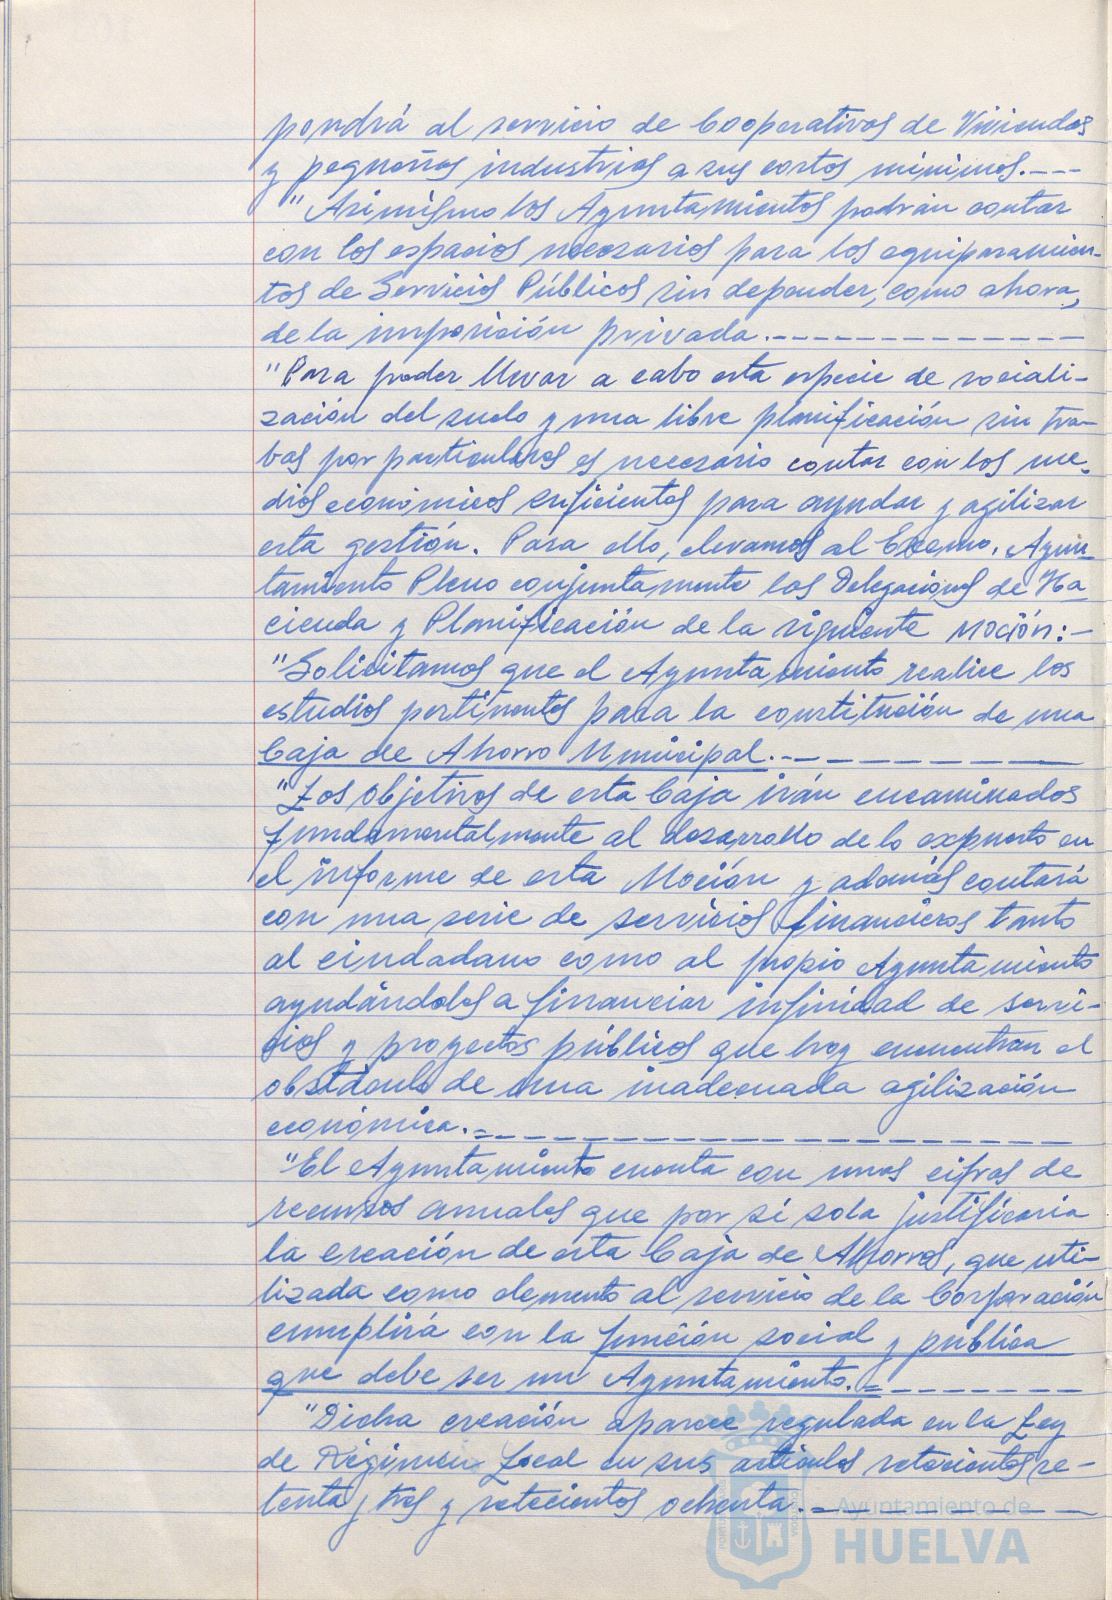 pondrá al servicio de Cooperativas de Viviendas
y pequeñas industrias a sus costos mínimos.---
"Asimismo los Ayuntamientos podrán contar
con los espacios necesarios para los equiparamien-
tos de Servicios Públicos sin depender, como ahora,
de la imposición privada.-------------
"Para poder llevar a cabo esta especie de sociali-
zación del suelo y una libre planificación sin tra-
bas por particulares es necesario contar con los me-
dios económicos suficientes para ayudar y agilizar
esta gestión. Para ello, elevamos al Excmo. Ayun-
tamiento Pleno conjuntamente las Delegaciones de Ha-
cienda y Planificación de la siguiente MOCIÓN:-
"Solicitamos que el Ayuntamiento realice los
estudios pertinentes para la constitución de una
Caja de Ahorro Municipal.----------
"Los objetivos de esta Caja irán encaminados
fundamentalmente al desarrollo de lo expuesto en
el informe de esta Moción y además contará
con una serie de servicios financieros tanto
al ciudadano como al propio Ayuntamiento
ayudándoles a financiar infinidad de servi-
cios y proyectos públicos que hoy encuentran el
obstáculo de una inadecuada agilización
económica.-----------------------
"El Ayuntamiento cuenta con unas cifras de
recursos anuales que por sí sola justificaria
la creación de esta Caja de Ahorros, que uti-
lizada como elemento al servicio de la Corporación
cumplirá con la función social y pública
que debe ser un Ayuntamiento.---------
"Dicha creación aparece regulada en la Ley
de Régimen Local en sus artículos setecientos se-
tenta y tres y setecientos ochenta.-----------
Ayuntamiento de
HUELVA